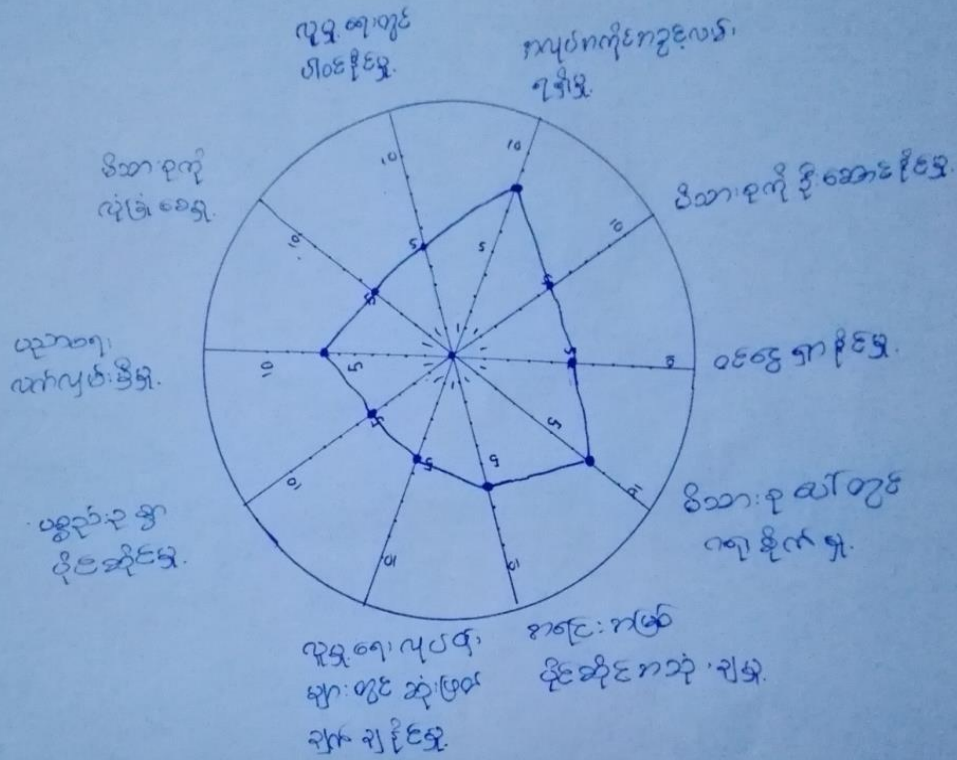 လူမှုရေးတွင်
ပါဝင်နိုင်မှု.
အလုပ်အကိုင်အခွင့်လမ်း
ရရှိမှု.
မိသားစုကို ဦးဆောင်နိုင်မှု.
ဝင်ငွေရှာနိုင်မှု.
မိသားစုပေါ်တွင်
ဂရုစိုက်မှု.
အရင်းအမြစ်
ပိုင်ဆိုင်အသုံးချမှု.
လူမှုရေးလုပ်ငန်း
များတွင် ဆုံးဖြတ်
ချက်ချနိုင်မှု.
ပစ္စည်းဥစ္စာ
ပိုင်ဆိုင်မှု.
ပညာရေး
လက်လှမ်းမှီမှု.
မိသားစုကို
လုံခြုံစေမှု.
10
5
10
5
10
5
10
5
10
5
10
5
10
5
10
5
10
5
10
5